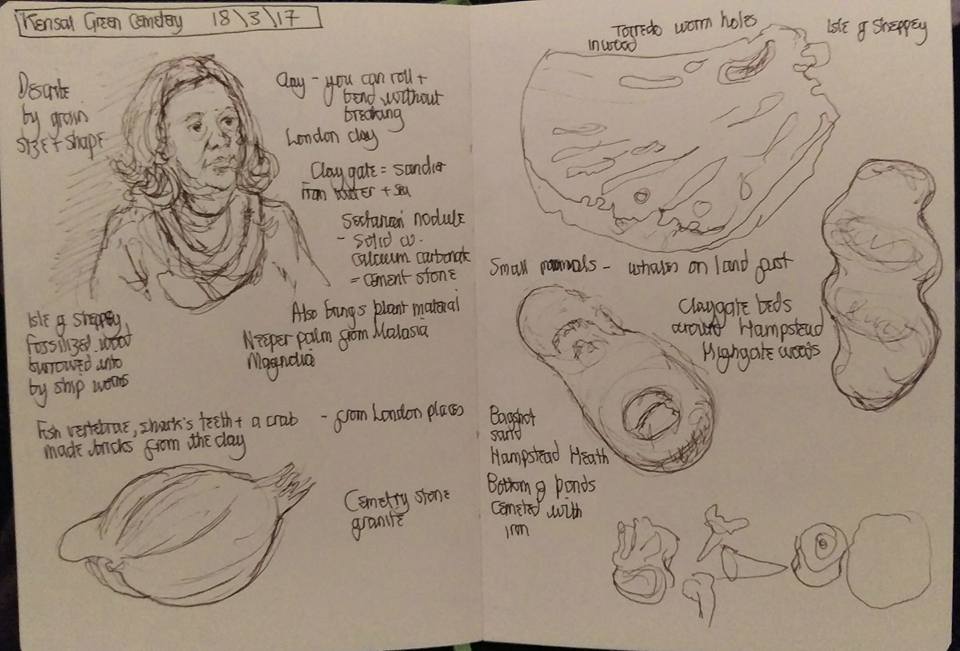 Kensal Green Cemetery 18\3\17
Describe
by grain
size + shape
Clay - you can roll +
bend without
breaking
London clay
Clay gate = sandier
from water + sea
Septarian nodule
- solid w.
calcium carbonate
= cement stone
Also brings plant material
Neeper palm from Malasia
Magnolia
Isle of Sheppey
fossilized wood
burrowed into
by ship worms
Fish vertebrae, shark's teeth + a crab - from London places
made bricks from the clay
Cemetry stone
granite
Torredo worm holes
in wood
Isle of Sheppey
Small mammals - whales on land first
Claygate beds
around Hampstead
Highgate woods
Bagshot
sand
Hampstead Heath
Bottom of ponds
cemeted with
iron